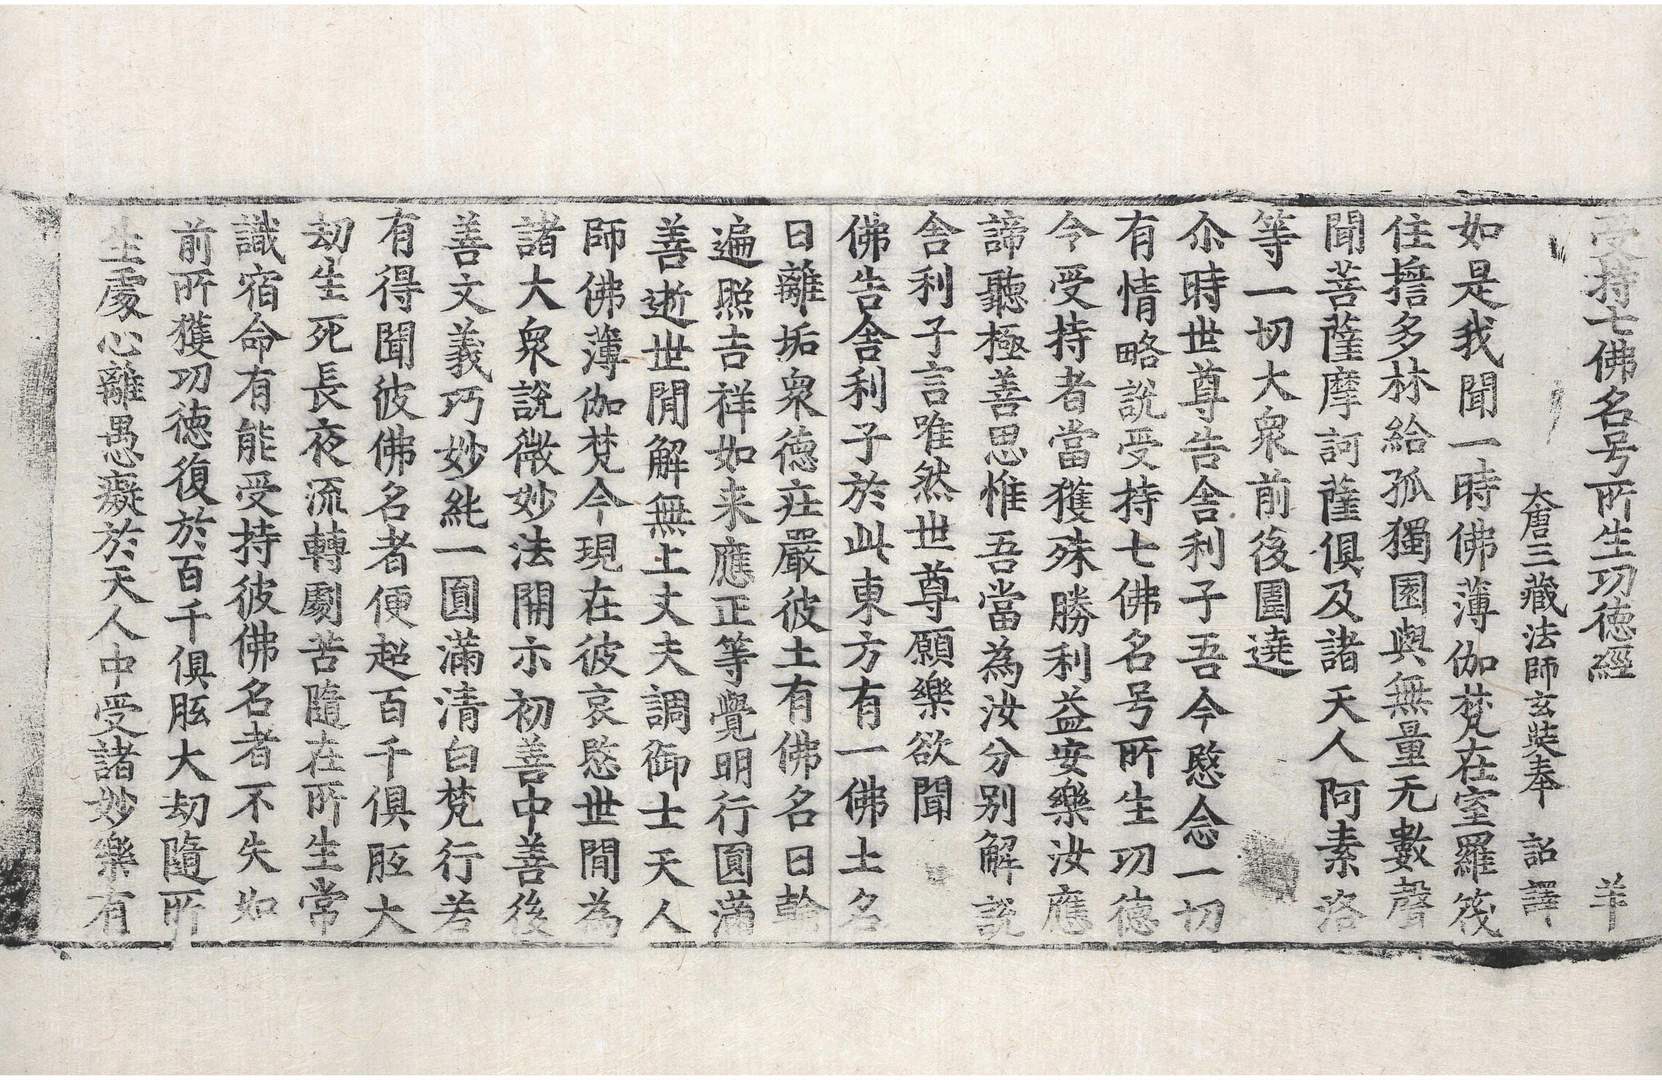 受持七佛名号所生功德經 羊
大唐三藏法師玄奘奉 詔譯
如是我聞一時佛薄伽梵在室羅筏
住擔多林給孤獨園與無量无數聲
聞菩薩摩訶薩俱及諸天人阿素洛
等一切大衆前後圍遶
尒時世尊告舍利子吾今愍念一切
有情略說受持七佛名号所生功德
今受持者當獲殊勝利益安樂汝應
諦聽極善思惟吾當為汝分別解說
舍利子言唯然世尊願樂欲聞
佛告舍利子於此東方有一佛土名
曰離垢衆德莊嚴彼土有佛名曰輪
遍照吉祥如来應正等覺明行圓滿
善逝世間解無上丈夫調御士天人
師佛薄伽梵今現在彼哀愍世間為
諸大衆說微妙法開示初善中善後
善文義巧妙純一圓滿清白梵行若
有得聞彼佛名者便超百千俱胝大
劫生死長夜流轉劇苦隨在所生常
識宿命有能受持彼佛名者不失如
前所獲功德復於百千俱胝大劫隨所
生處心離愚癡於天人中受諸妙樂有